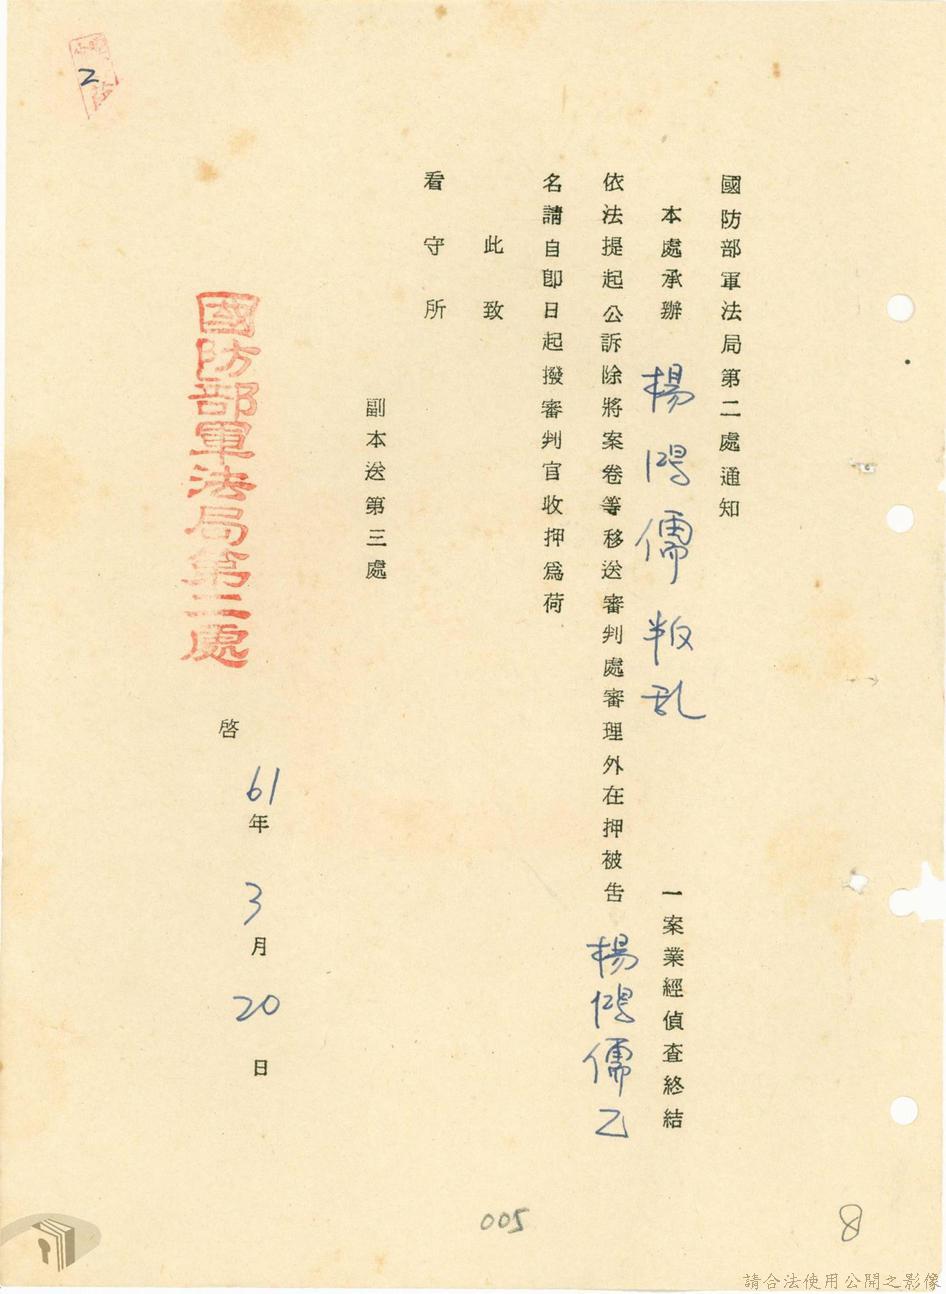 國防部軍法局第二處通知
本處承辦 楊鴻儒叛乱 一案業經偵查終結
依法提起公訴除將案卷等移送審判處審理外在押被告 楊鴻儒乙
名請自卽日起撥審判官收押爲荷
此致
看守所
副本送第三處
國防部軍法局第二處
啓
61年3月20日
2
005
8
請合法使用公開之影像